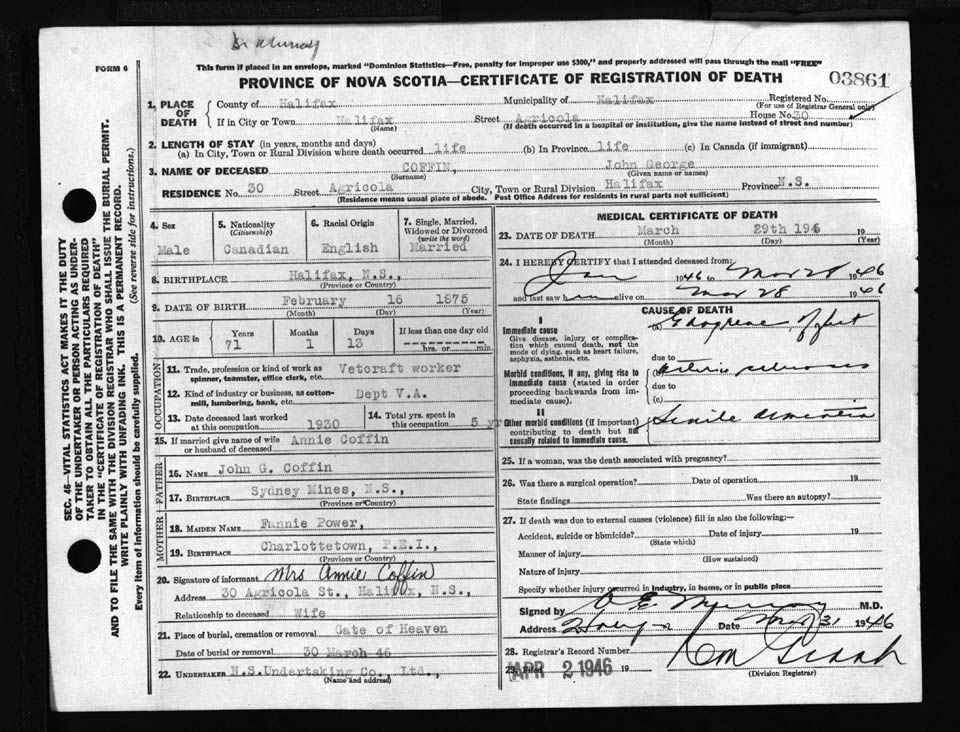 Dr Murray
FORM 6
This form if placed in an envelope, marked "Dominion Statistics—Free, penalty for improper use $300," and properly addressed will pass through the mail "FREE"
PROVINCE OF NOVA SCOTIA—CERTIFICATE OF REGISTRATION OF DEATH
03861
1. PLACE OF DEATH
County of Halifax Municipality of Halifax Registered No.
(For use of Registrar General only)
If in City or Town Halifax Street Agricola House No. 30
(Name) (If death occurred in a hospital or institution, give the name instead of street and number)
2. LENGTH OF STAY (in years, months and days)
(a) In City, Town or Rural Division where death occurred life (b) In Province life (c) In Canada (if immigrant)
3. NAME OF DECEASED COFFIN, John George
(Surname) (Given name or names)
RESIDENCE No. 30 Street Agricola City, Town or Rural Division Halifax Province N.S.
(Residence means usual place of abode. Post Office Address for residents in rural parts not sufficient)
4. Sex
Male
5. Nationality
(Citizenship)
Canadian
6. Racial Origin
English
7. Single, Married, Widowed or Divorced
(write the word)
Married
8. BIRTHPLACE Halifax, N.S.,
(Province or Country)
9. DATE OF BIRTH February 16 1875
(Month) (Day) (Year)
10. AGE in
Years Months Days If less than one day old
71 1 13 hrs. or min.
OCCUPATION
11. Trade, profession or kind of work as Vetcraft worker
spinner, teamster, office clerk, etc.
12. Kind of industry or business, as cotton- Dept V.A.
mill, lumbering, bank, etc.
13. Date deceased last worked
at this occupation 1930
14. Total yrs. spent in
this occupation 5 yrs
15. If married give name of wife Annie Coffin
or husband of deceased
FATHER
16. NAME John G. Coffin
17. BIRTHPLACE Sydney Mines, N.S.,
(Province or Country)
MOTHER
18. MAIDEN NAME Fannie Power,
19. BIRTHPLACE Charlottetown, P.E.I.,
(Province or Country)
20. Signature of informant Mrs Annie Coffin
Address 30 Agricola St., Halifax, N.S.,
Relationship to deceased Wife
21. Place of burial, cremation or removal Gate of Heaven
Date of burial or removal 30 March 46
22. UNDERTAKER N.S.Undertaking Co., Ltd.,
(Name and address)
MEDICAL CERTIFICATE OF DEATH
23. DATE OF DEATH March 29th 1946 19
(Month) (Day) (Year)
24. I HEREBY CERTIFY that I attended deceased from:
Jan 1946 to Mar 28 1946
and last saw him alive on Mar 28 1946
CAUSE OF DEATH
I
Immediate cause
Give disease, injury or complication which caused death, not the mode of dying, such as heart failure, asphyxia, asthenia, etc.
(a) of feet
due to
Morbid conditions, if any, giving rise to immediate cause (stated in order proceeding backwards from immediate cause).
(b)
due to
(c)
II
Other morbid conditions (if important) contributing to death but not causally related to immediate cause.
Senile dementia
25. If a woman, was the death associated with pregnancy?
26. Was there a surgical operation? Date of operation 19
State findings Was there an autopsy?
27. If death was due to external causes (violence) fill in also the following:—
Accident, suicide or homicide? Date of injury 19
(State which)
Manner of injury
(How sustained)
Nature of injury
Specify whether injury occurred in industry, in home, or in public place
Signed by O E Murray M.D.
Address Halifax Date Mar 31 1946
28. Registrar's Record Number
29. Filed APR 2 1946 19
(Division Registrar)
SEC. 46—VITAL STATISTICS ACT MAKES IT THE DUTY
OF THE UNDERTAKER OR PERSON ACTING AS UNDER-
TAKER TO OBTAIN ALL THE PARTICULARS REQUIRED
IN THE "CERTIFICATE OF REGISTRATION OF DEATH"
AND TO FILE THE SAME WITH THE DIVISION REGISTRAR WHO SHALL ISSUE THE BURIAL PERMIT.
WRITE PLAINLY WITH UNFADING INK. THIS IS A PERMANENT RECORD.
Every item of information should be carefully supplied. (See reverse side for instructions.)